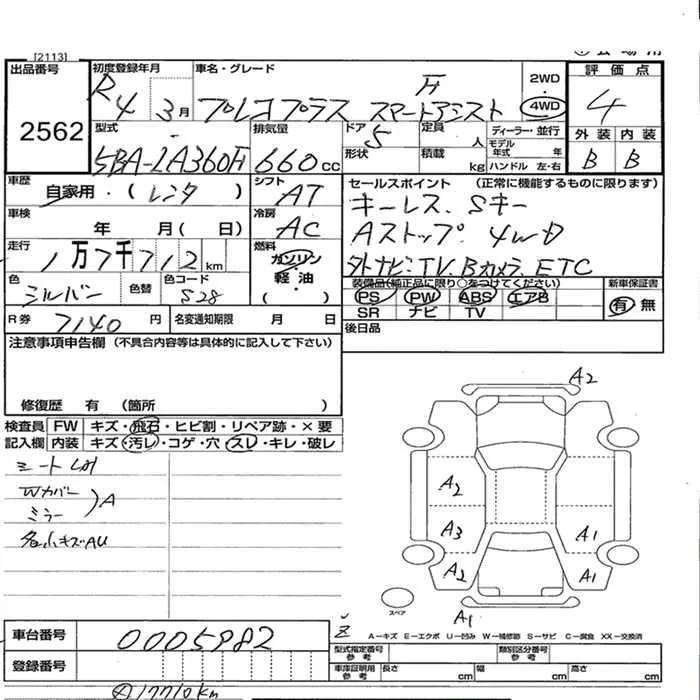 [2113]
出品番号 2562
初度登録年月 R 4 3月
車名・グレード プレコプラス スマートアシスト F
2WD 4WD
評価点 4
外装 内装
B B
型式 5BA-LA360F
排気量 660cc
ドア 5
形状
定員 人
積載 kg
ディーラー・並行
モデル年式 年
ハンドル 左・右
車歴 自家用・(レンタ)
シフト AT
車検 年 月(日)
冷房 AC
走行 1万7千712km
燃料 ガソリン
軽・油
( )
色 シルバー
色替
色コード S28
R券 7140円
名変通知期限 月 日
セールスポイント (正常に機能するものに限ります)
キーレス、Sキー
Aストップ、4WD
外ナビ・TV、Bカメラ、ETC
装備品(純正品に限り○をつけてください)
PS PW ABS エアB
SR ナビ TV
新車保証書
有 無
後日品
注意事項申告欄(不具合内容等は具体的に記入して下さい)
修復歴 有 (箇所 )
検査員 FW キズ・飛石・ヒビ割・リペア跡・×要
記入欄 内装 キズ・汚レ・コゲ・穴・スレ・キレ・破レ
Wカバー
ミラー
A
各小キズAU
A2
A2
A3
A2
A1
A1
A1
スペア
A-キズ E-エクボ U-凹み W-補修跡 S-サビ C-腐食 XX-交換済
車台番号 0005982
登録番号
型式指定番号 参考
類別区分番号 参考
車庫証明用 参考
長さ cm
幅 cm
高さ cm
17710km